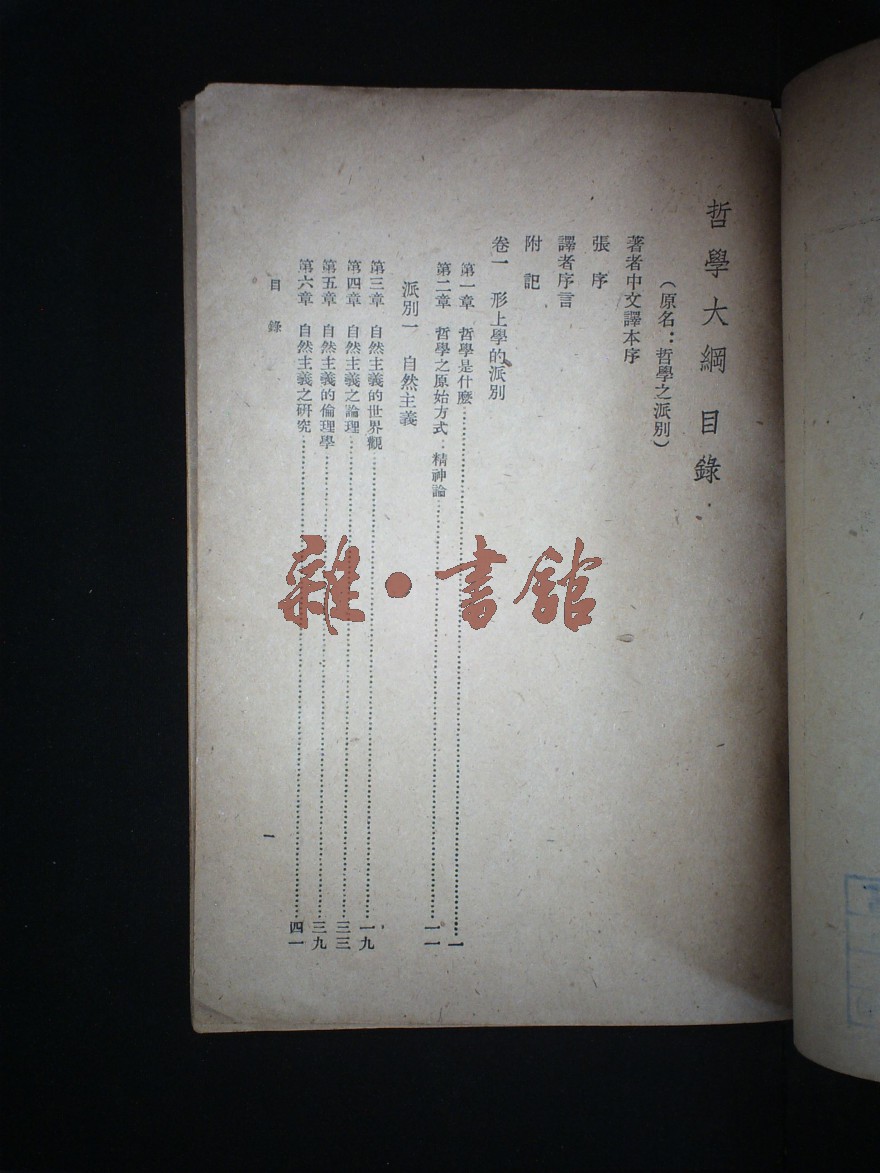 哲學大綱 目錄
（原名：哲學之派別）
著者中文譯本序
張 序
譯者序言
附 記
卷一 形上學的派別
第一章 哲學是什麼……一
第二章 哲學之原始方式：精神論……一一
派別一 自然主義
第三章 自然主義的世界觀……一九
第四章 自然主義之論理……三三
第五章 自然主義的倫理學……三九
第六章 自然主義之研究……四一
目 錄
一
雜·書館